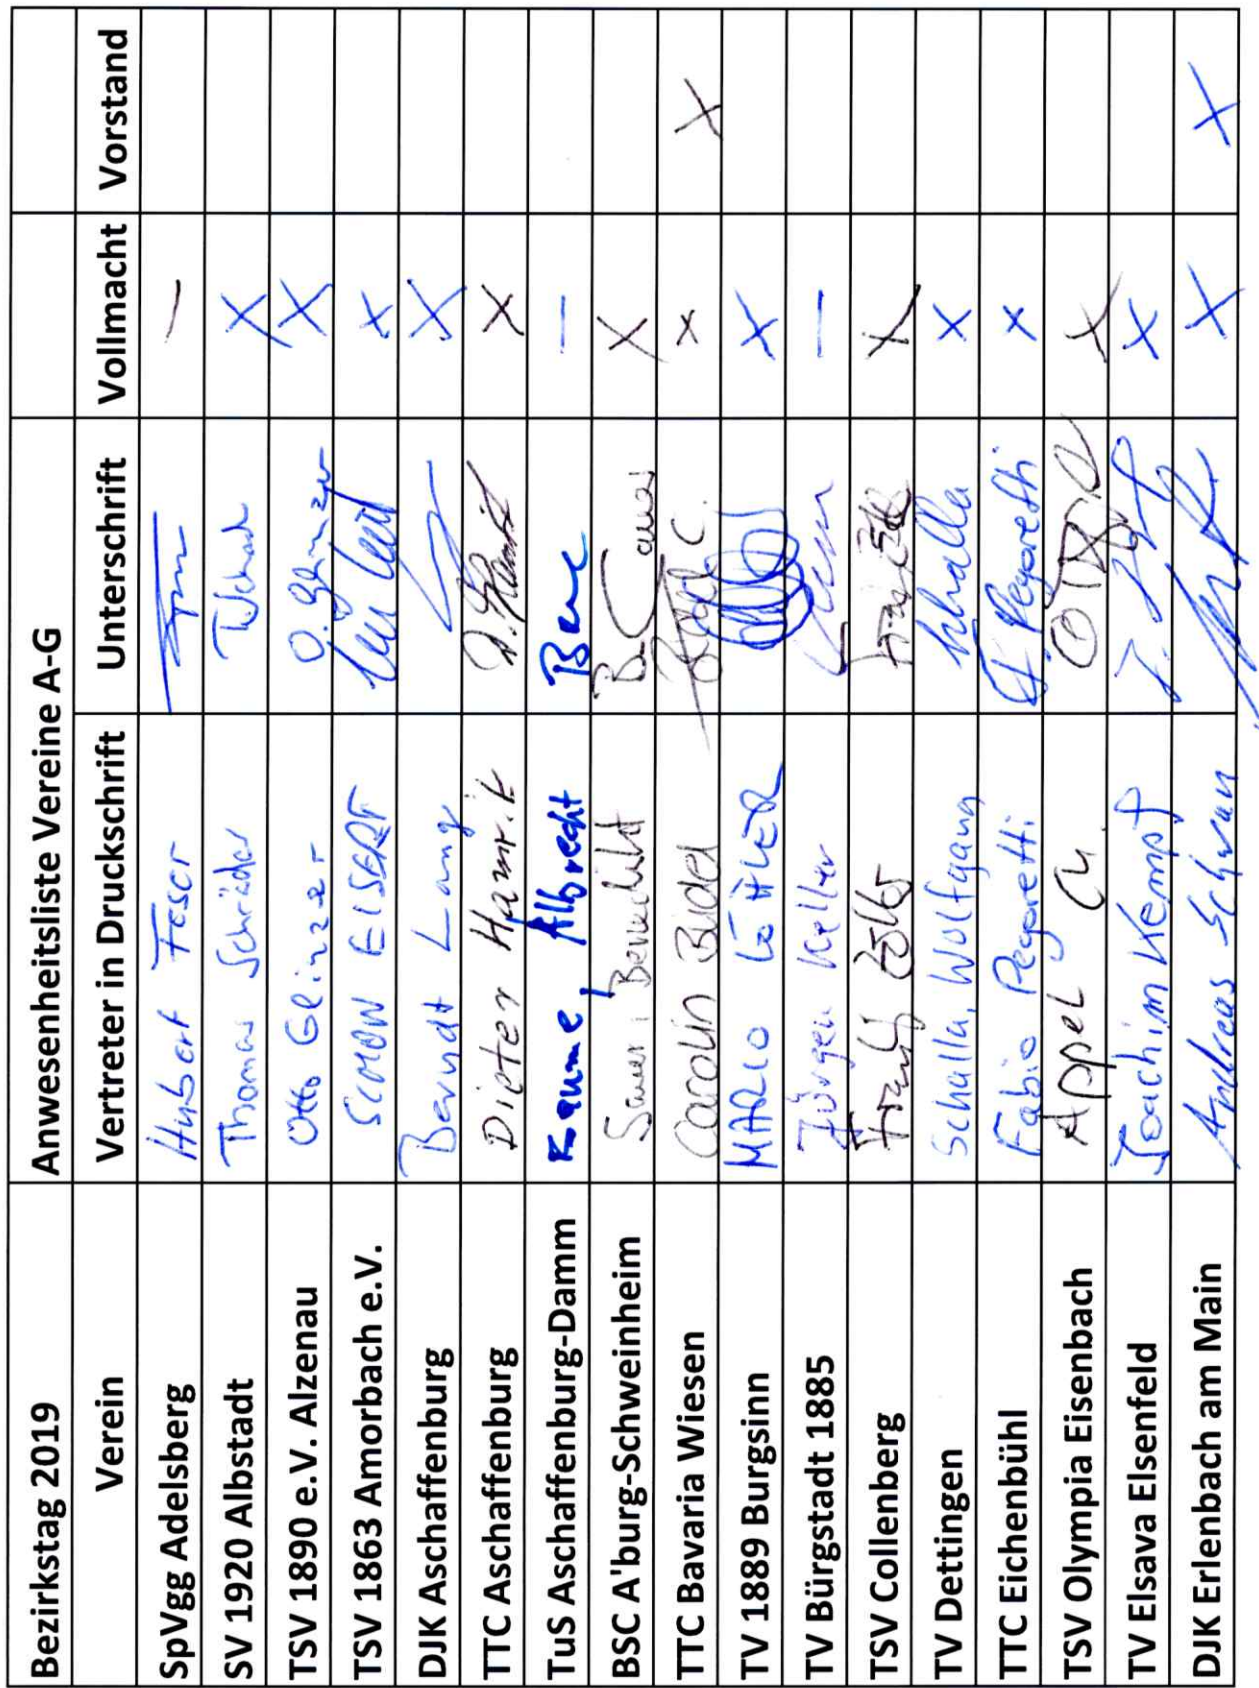 Bezirkstag 2019 Anwesenheitsliste Vereine A-G
Verein Vertreter in Druckschrift Unterschrift Vollmacht Vorstand
SpVgg Adelsberg Hubert Feser –
SV 1920 Albstadt Thomas Schräder X
TSV 1890 e.V. Alzenau Otto Glinzer O. Glinzer X
TSV 1863 Amorbach e.V. SIMON EISERT X
DJK Aschaffenburg Berndt Lang X
TTC Aschaffenburg Dieter Hamrik X
TuS Aschaffenburg-Damm Albrecht –
BSC A'burg-Schweinheim X
TTC Bavaria Wiesen Carolin X X
TV 1889 Burgsinn MARIO X
TV Bürgstadt 1885 Jürgen Keller –
TSV Collenberg X
TV Dettingen Schalla, Wolfgang Schalla X
TTC Eichenbühl Fabio Pegoretti F. Pegoretti X
TSV Olympia Eisenbach Appel X
TV Elsava Elsenfeld Joachim Kempf X
DJK Erlenbach am Main Andreas Schwan X X